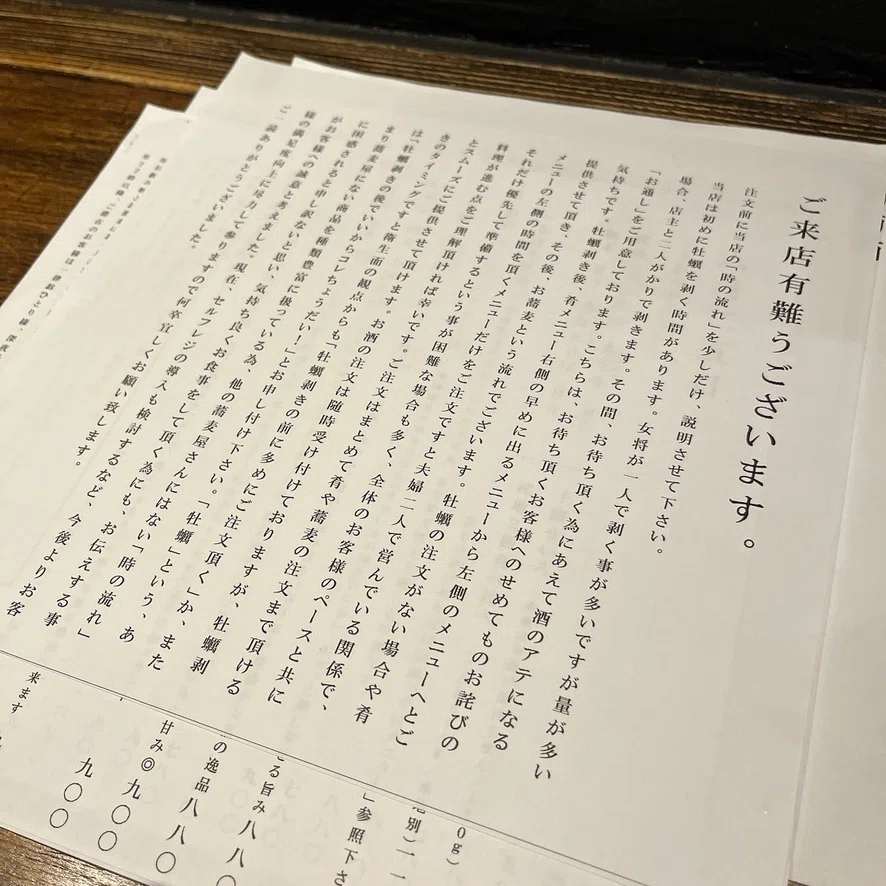 ご来店有難うございます。
注文前に当店の「時の流れ」を少しだけ、説明させて下さい。
当店は初めに牡蠣を剥く時間があります。女将が一人で剥く事が多いですが量が多い
場合、店主と二人がかりで剥きます。その間、お待ち頂く為にあえて酒のアテになる
「お通し」をご用意しております。こちらは、お待ち頂くお客様へのせめてものお詫びの
気持ちです。牡蠣剥き後、肴メニュー右側の早めに出るメニューから左側のメニューへとご
提供させて頂き、その後、お蕎麦という流れでございます。牡蠣の注文がない場合や肴
メニューの左側の時間を頂くメニューだけをご注文ですと夫婦二人で営んでいる関係で、
それだけ優先して準備するという事が困難な場合も多く、全体のお客様のペースと共に
料理が進む点をご理解頂ければ幸いです。ご注文はまとめて肴や蕎麦の注文まで頂ける
とスムーズにご提供させて頂けます。お酒の注文は随時受け付けておりますが、牡蠣剥
きのタイミングですと衛生面の観点からも「牡蠣剥きの前に多めにご注文頂く」か、また
は「牡蠣剥きの後でいいからコレちょうだい！」とお申し付け下さい。「牡蠣」という、あ
まり蕎麦屋にない商品を種類豊富に扱っている為、他の蕎麦屋さんにはない「時の流れ」
に困惑されると申し訳ないと思い、気持ち良くお食事をして頂く為にも、お伝えする事
がお客様への誠意と考えました。現在、セルフレジの導入も検討するなど、今後よりお客
様の満足度向上に尽力して参りますので何卒宜しくお願い致します。
ご一読ありがとうございました。
0g）
別）一
」参照下さ
る旨み 八八〇
の逸品 八八〇
甘み◎ 九〇〇
九〇〇
来ます